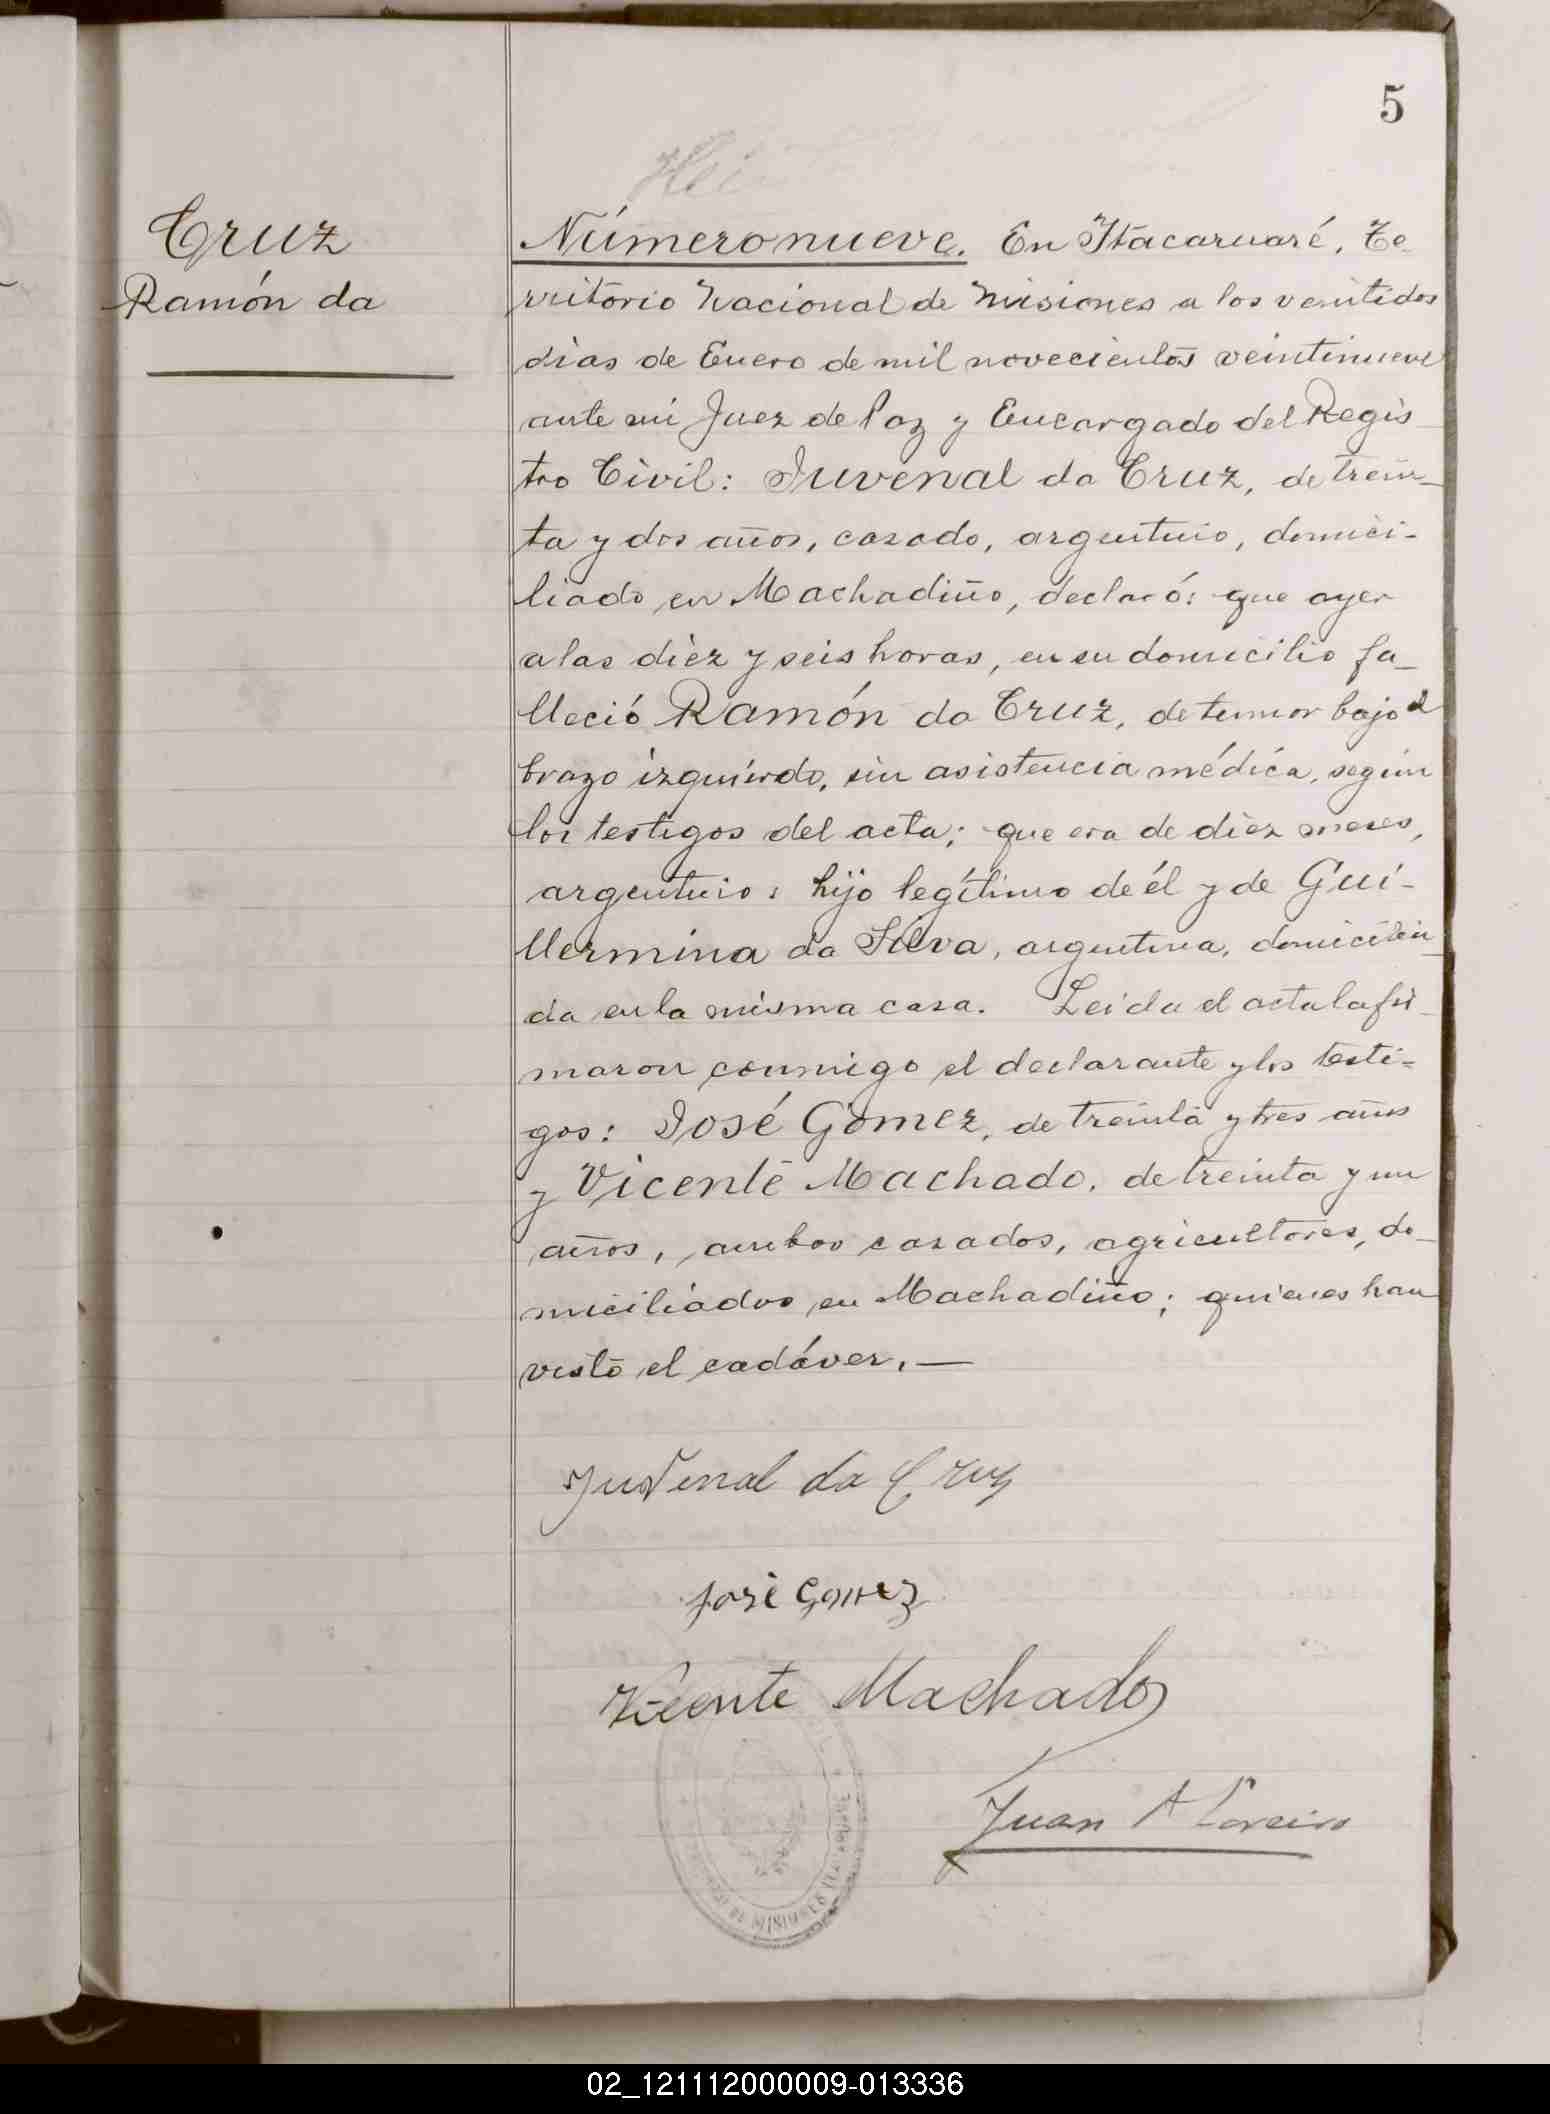 5
Hei
Cruz
Ramón da
Número nueve. En Itacaruaré, Te-
rritorio Nacional de Misiones a los veintidos
dias de Enero de mil novecientos veintinueve
ante mi Juez de Paz y Encargado del Regis-
tro Civil: Juvenal da Cruz, de trein-
ta y dos años, casado, argentino, domici-
liado en Machadiño, declaró: que ayer
a las diez y seis horas, en su domicilio fa-
lleció Ramón da Cruz, de tumor bajo el
brazo izquierdo, sin asistencia médica, según
los testigos del acta; que era de diez meses,
argentino: hijo legítimo de él y de Gui-
llermina da Silva, argentina, domicilia-
da en la misma casa. Leida el acta la fir-
maron conmigo el declarante y los testi-
gos: José Gomez, de treinta y tres años
y Vicente Machado, de treinta y un
años, ambos casados, agricultores, do-
miciliados en Machadiño; quienes han
visto el cadáver. —
Juvenal da Cruz
José Gomez
Vicente Machado
Juan A
MISIONES
02_121112000009-013336